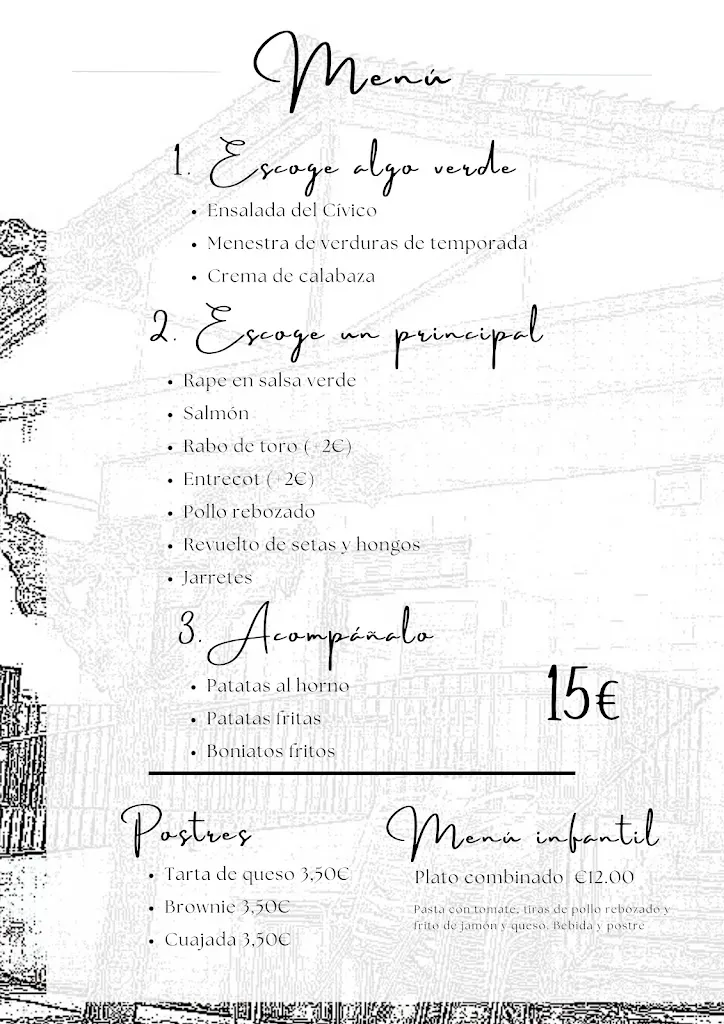 Menú
1. Escoge algo verde
• Ensalada del Cívico
• Menestra de verduras de temporada
• Crema de calabaza
2. Escoge un principal
• Rape en salsa verde
• Salmón
• Rabo de toro (+2€)
• Entrecot (+2€)
• Pollo rebozado
• Revuelto de setas y hongos
• Jarretes
3. Acompáñalo
• Patatas al horno
• Patatas fritas
• Boniatos fritos
15€
Postres
• Tarta de queso 3,50€
• Brownie 3,50€
• Cuajada 3,50€
Menú infantil
Plato combinado €12.00
Pasta con tomate, tiras de pollo rebozado y
frito de jamon y queso. Bebida y postre